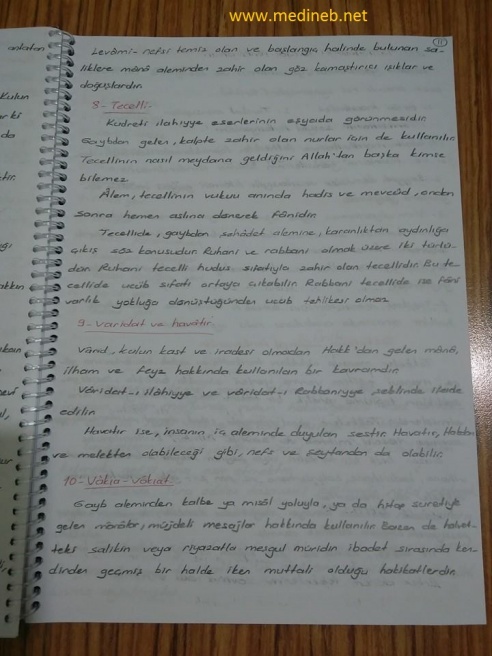 www.medineb.net
11
Levâmi- nefsi temiz olan ve başlangıç halinde bulunan sa-
liklere mânâ aleminden zahir olan göz kamaştırıcı ışıklar ve
doğuşlardır.
8- Tecelli:
Kudreti ilahiyye eserlerinin eşyada görünmesidir.
Gaybdan gelen, kalpte zahir olan nurlar için de kullanılır.
Tecellinin nasıl meydana geldiğini Allah'tan başka kimse
bilemez.
Âlem, tecellinin vukuu anında hadis ve mevcûd, ondan
sonra hemen aslına dönerek fânidir.
Tecellide, gaybdan şahâdet alemine, karanlıktan aydınlığa
çıkış söz konusudur. Ruhani ve rabbani olmak üzere iki türlü-
dür. Ruhani tecelli hudûs sıfatıyla zahir olan tecellidir. Bu te-
cellide ucûb sıfatı ortaya çıkabilir. Rabbani tecellide ise fâni
varlık yokluğa dönüştüğünden ucub tehlikesi olmaz.
9- Varidat ve havâtır
Vârid, kulun kast ve iradesi olmadan Hakk'dan gelen mânâ,
ilham ve feyz hakkında kullanılan bir kavramdır.
Vâridat-ı ilâhiyye ve vâridat-ı Rabbaniyye şeklinde ifade
edilir.
Havatır ise, insanın iç aleminde duyulan sestir. Havatır, Hakdan
ve melekten olabileceği gibi, nefs ve şeytandan da olabilir.
10- Vâkıa-vâkıat:
Gayb aleminden kalbe ya misâl yoluyla, ya da hitap sûretiyle
gelen mânâlar, müjdeli mesajlar hakkında kullanılır. Bazen de halvet-
teki salikin veya riyazatla meşgul müridin ibadet sırasında ken-
dinden geçmiş bir halde iken muttali olduğu hakikatlerdir.